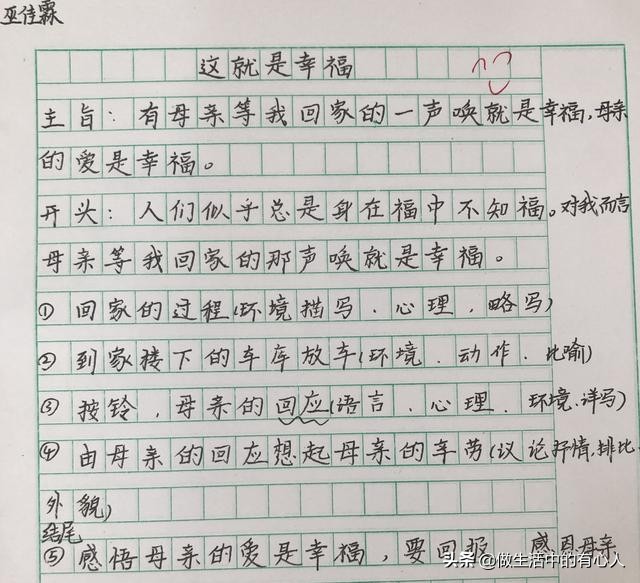 巫佳霖
这就是幸福
主旨：有母亲等我回家的一声唤就是幸福，母亲
的爱是幸福。
开头：人们似乎总是身在福中不知福。对我而言
母亲等我回家的那声唤就是幸福。
①回家的过程(环境描写．心理．略写)
②到家楼下的车库放车(环境．动作．比喻)
③按铃，母亲的回应(语言．心理．环境.详写)
④由母亲的回应想起母亲的辛劳(议论抒情.排比.
外貌)
结尾
⑤感悟母亲的爱是幸福，要回报 感恩母亲
头条 @做生活中的有心人